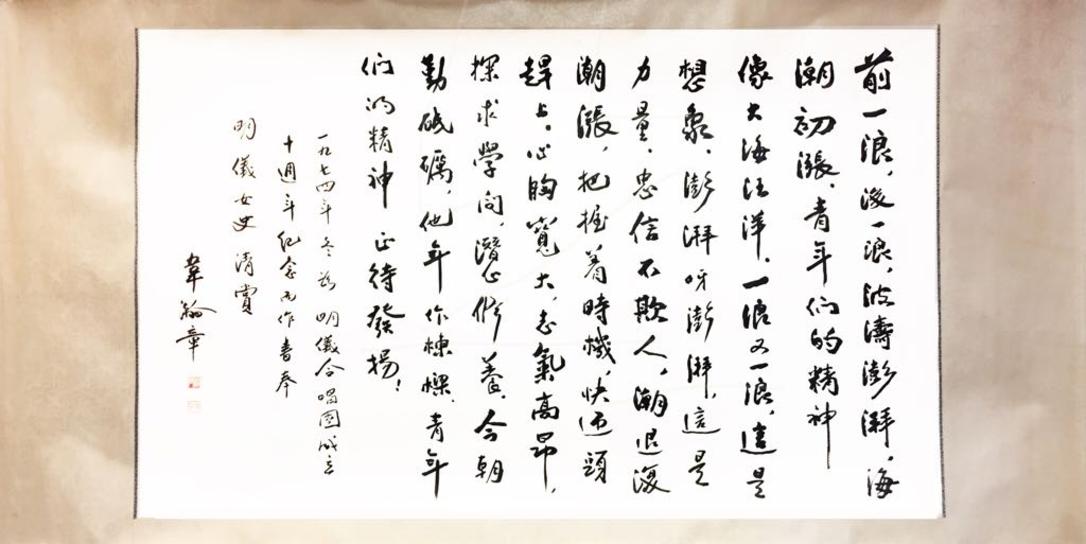 前一浪，後一浪，波濤澎湃，海
潮初漲，青年们的精神
像大海汪洋，一浪又一浪，這是
想象，澎湃呀澎湃，這是
力量，忠信不欺人，潮退復
潮漲，把握着時機，快迎頭
趕上，心胸寬大，志氣高昂，
探求學問，潛心修養，今朝
勤砥礪，他年作棟樑，青年
们的精神 正待發揚！
一九七四年冬為 明儀合唱團成立
十週年纪念而作書奉
明儀女史 清賞
韋瀚章